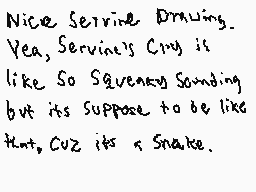 Nice Servine Drawing.
Yea, Servine's Cry is
like So Squeaky Sounding
but its suppose to be like
that, cuz its a Snake.